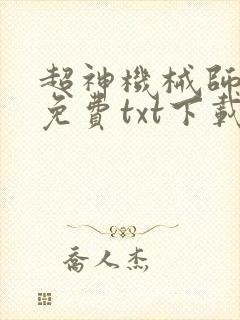 超神機械師
免費txt下載
喬人杰